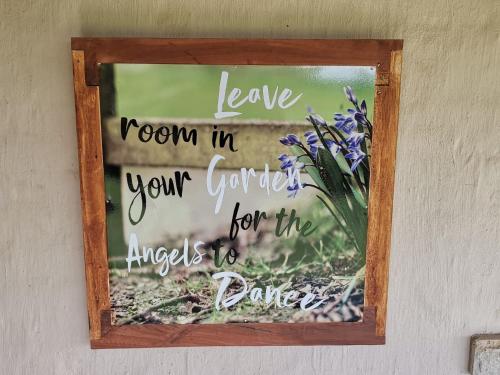 Leave
room in
your Garden
for the
Angels to
Dance